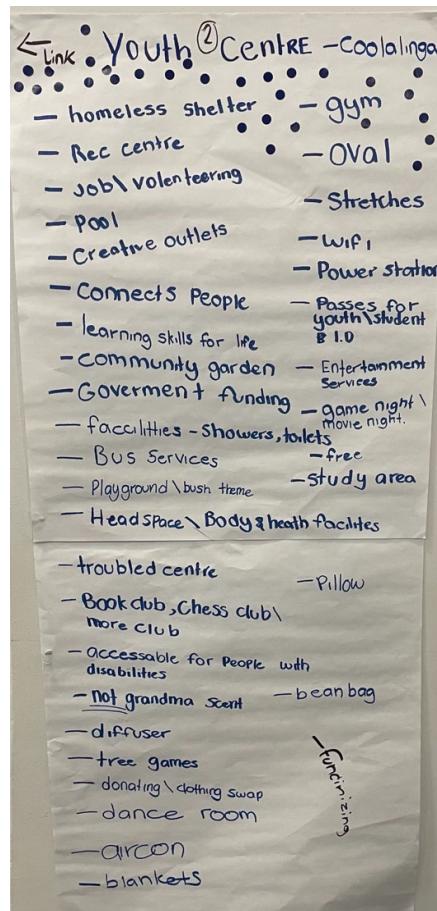 ← Link
Youth ② CentRE - Coolalinga
- homeless shelter
- Rec centre
- Job\ volenteering
- Pool
- Creative outlets
- Connects People
- learning skills for life
- Community garden
- Goverment funding
- faccilitties - Showers, toilets
- Bus Services
- Playground \ bush theme
- Headspace \ Body & heath facilites
- gym
- OVal
- Stretches
- WiFi
- Power station
- Passes for
youth\student
I.D
- Entertainment
Services
- game night \
movie night.
- free
- study area
- troubled centre
- Book club, Chess club\
more club
- accessable for People with
disabilities
- not grandma scent
- diffuser
- tree games
- donating \ clothing swap
- dance room
- aircon
- blankets
- Pillow
- bean bag